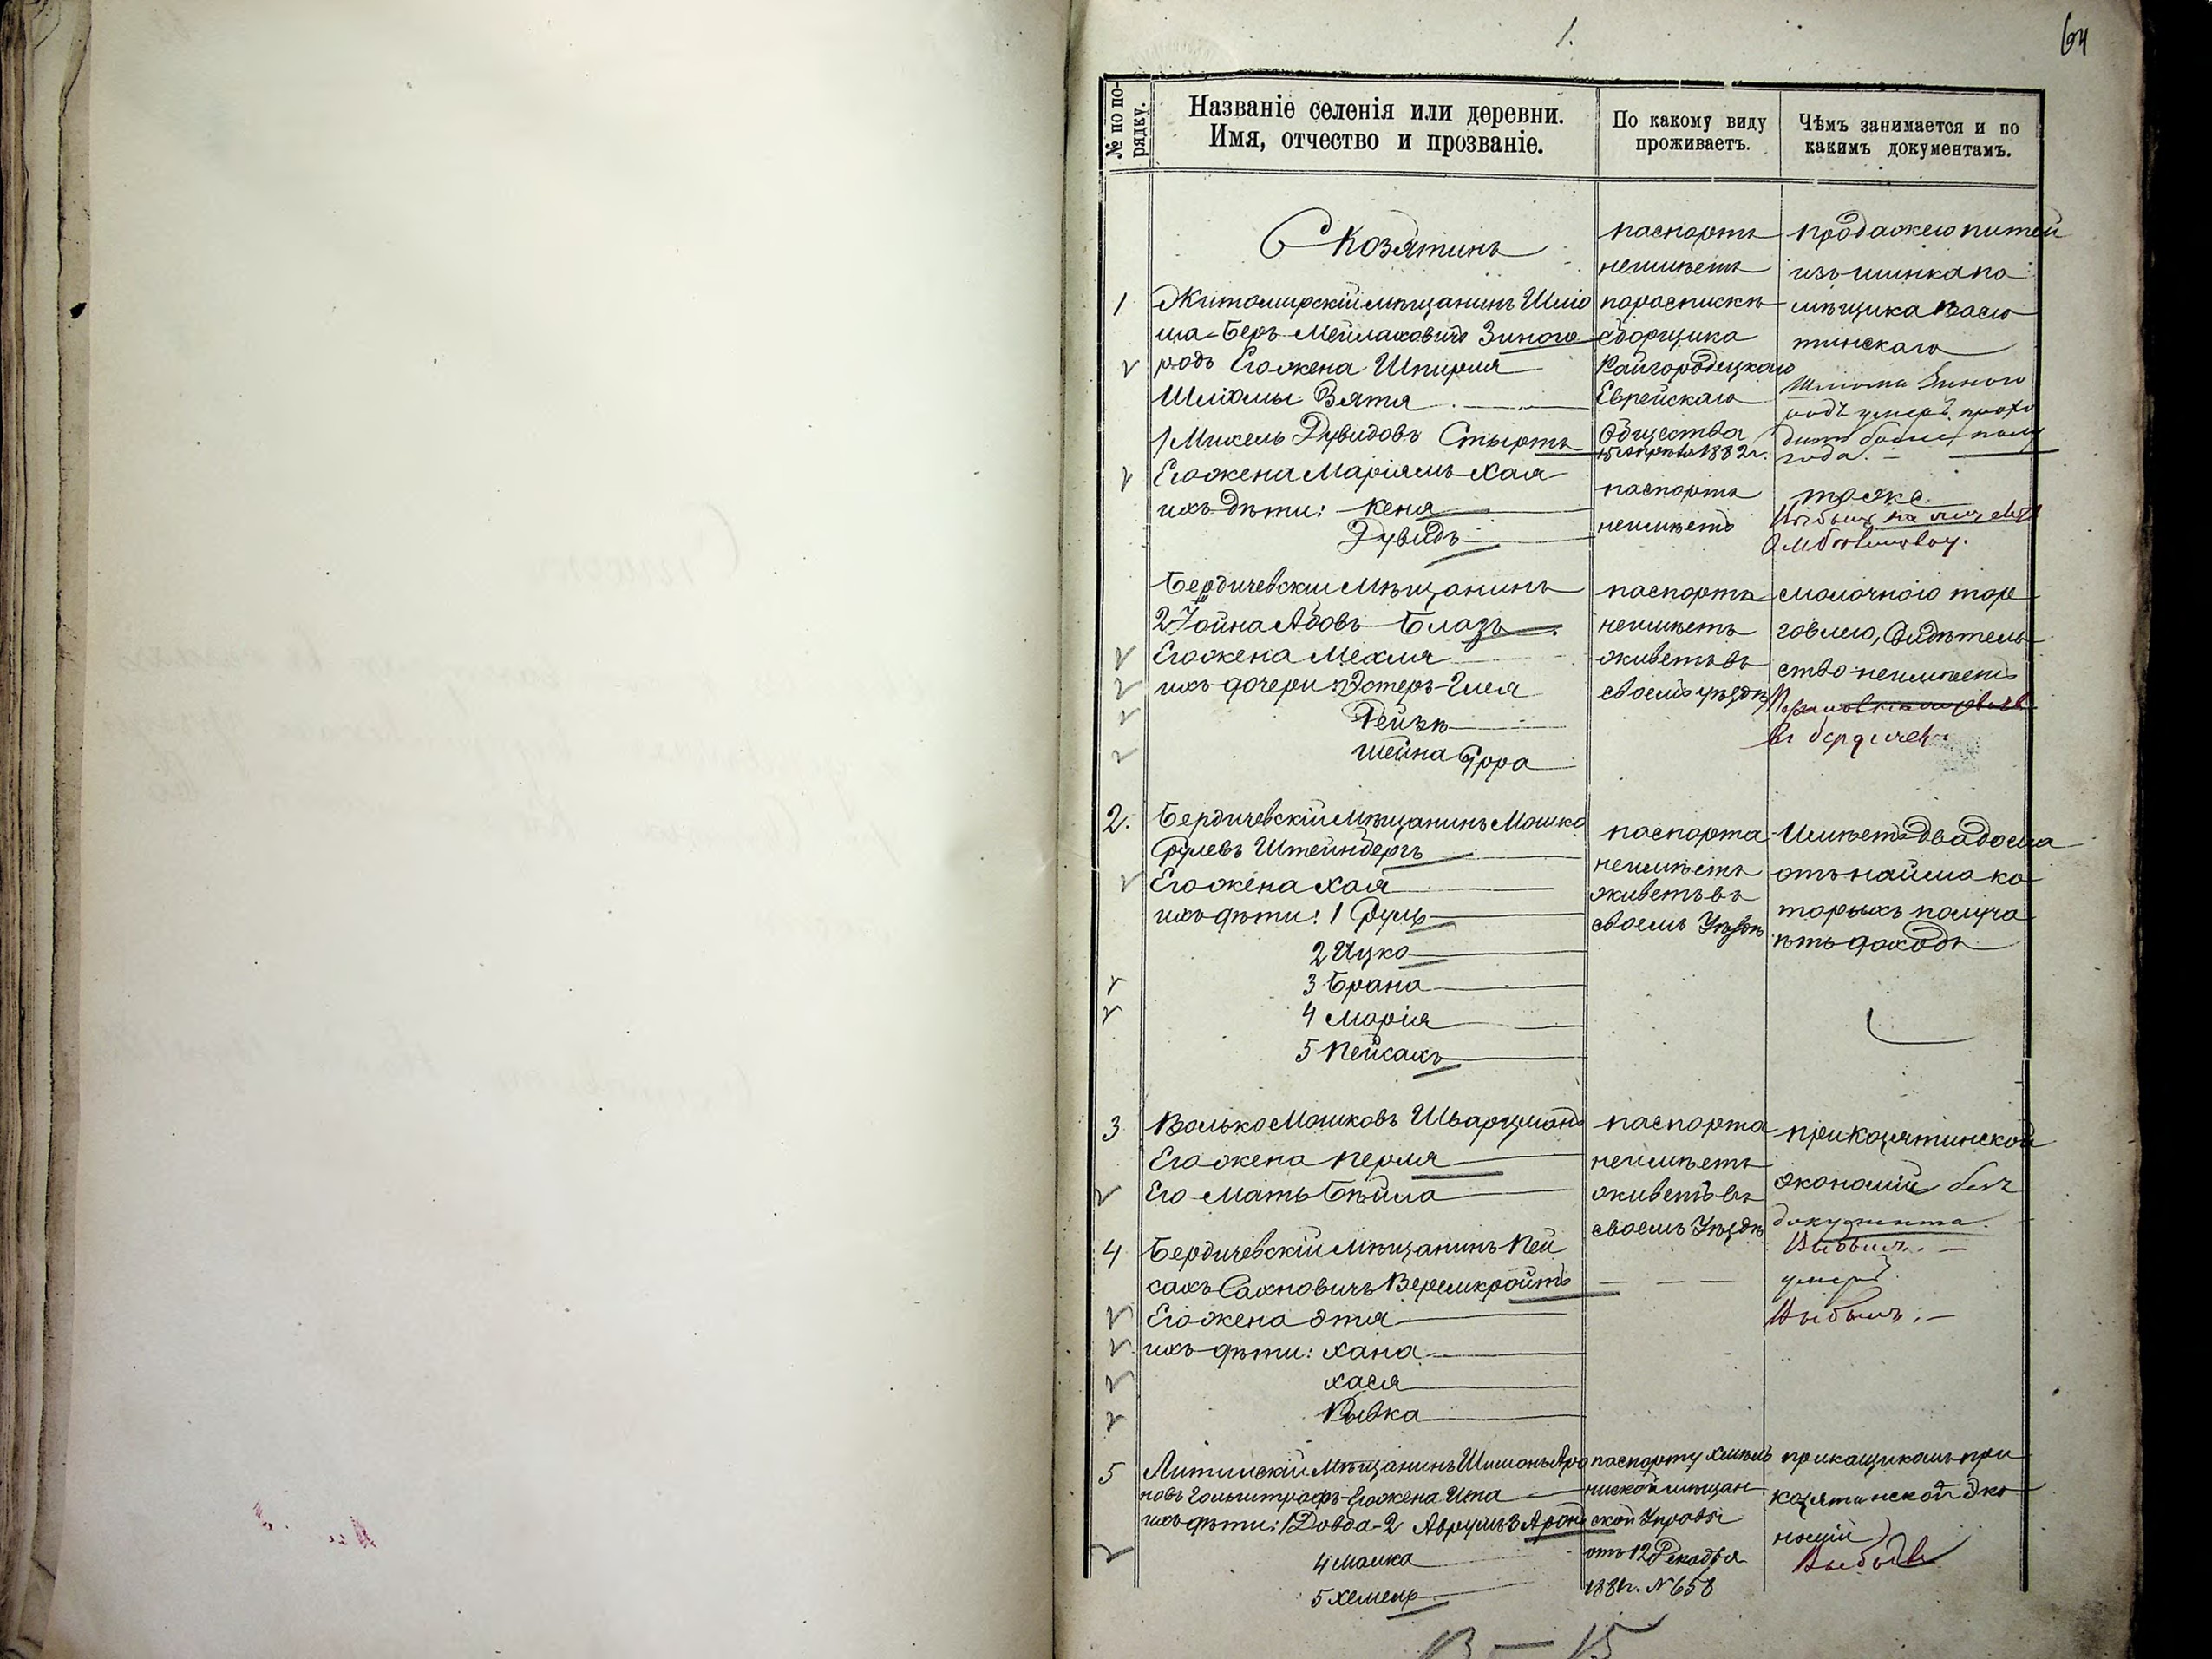 1.
64
№ по по-
рядку.
Названіе селенія или деревни.
Имя, отчество и прозваніе.
По какому виду
проживаетъ.
Чѣмъ занимается и по
какимъ документамъ.
С Козятинъ
1 Житомирскій мѣщанинъ Шліо
ма-Беръ Мейлаховичъ Зиного
родъ Его жена Шпирля
Шліомы Зятя
1 Михель Дувидовъ Стыртъ
Его жена Маріямъ-Хая
ихъ дѣти: Кеня
Дувидъ
паспорта
неимѣетъ
по роспискѣ
сборщика
Райгородецкаго
Еврейскаго
Общества
15 Апрѣля 1882 г.
паспорта
неимѣетъ
продажею питей
изъ шинка по
мѣщика Васю
тинскаго
Шліома Зиного
родъ умеръ
года.
тоже
Бердичевскій Мѣщанинъ
2 Іойна Абовъ Блазъ
Его жена Мехля
ихъ дочери: Эстеръ-Гиея
Рейзя
Шейна Сурра
паспорта
неимѣетъ
живетъ въ
своемъ уѣздѣ
молочною тор
говлею, Свидѣтель
ство неимѣетъ
въ Бердичевѣ
2. Бердичевскій Мѣщанинъ Мошко
Срулевъ Штейнбергъ
Его жена Хая
ихъ дѣти: 1 Сруль
2 Ицко
3 Брана
4 Марія
5 Пейсахъ
паспорта
неимѣетъ
живетъ въ
своемъ Уѣздѣ
Имѣетъ два дома
отъ найма ко
торыхъ получа
етъ доходъ
3 Волько Мошковъ Шварцманъ
Его жена Перля
Его Мать Бейла
паспорта
неимѣетъ
живетъ въ
своемъ Уѣздѣ
при козятинской
экономіи безъ
документа.
Выбылъ. —
4 Бердичевскій Мѣщанинъ Пей
сахъ Сахновичъ Веремкройтъ
Его жена Этя
ихъ дѣти: Хана
Хася
Рывка
— — —
умеръ
Выбылъ. —
5 Литинскій Мѣщанинъ Шимонъ Аро
новъ Гольштрафъ-Его жена Ита
ихъ дѣти: 1 Довба-2 Аврумъ 3 Аронъ
4 Малка
5 Хемель
паспорту Хмѣль
никской мѣщан
ской Управы
отъ 12 Декабря
1881 г. № 658
прикащикомъ при
козятинской Эко
номіи
Выбылъ
13 — 15